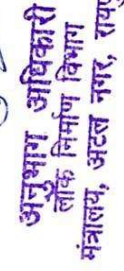 अनुभाग अधिकारी
लोक निर्माण विभाग
मंत्रालय, अटल नगर,